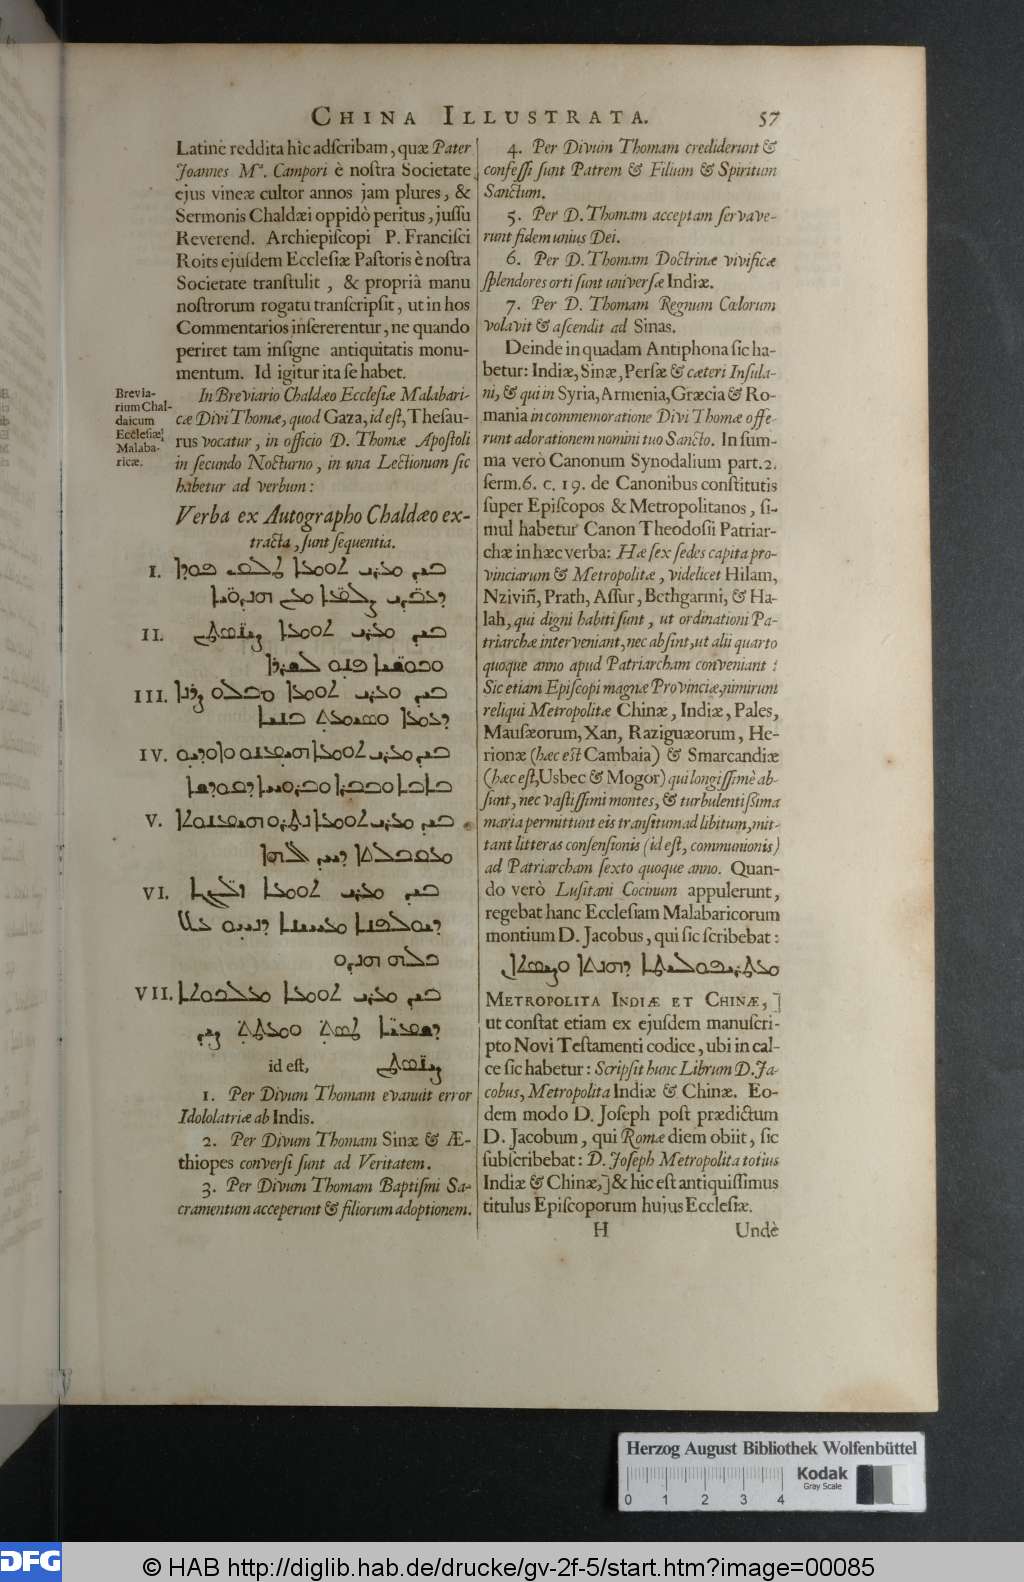 CHINA ILLUSTRATA. 57
Latinè reddita hìc adſcribam, quæ Pater
Joannes Mª. Campori è noſtra Societate
ejus vineæ cultor annos jam plures, &
Sermonis Chaldæi oppidò peritus, juſſu
Reverend. Archiepiſcopi P. Franciſci
Roits ejuſdem Eccleſiæ Paſtoris è noſtra
Societate tranſtulit, & propriâ manu
noſtrorum rogatu tranſcripſit, ut in hos
Commentarios inſererentur, ne quando
periret tam inſigne antiquitatis monu-
mentum. Id igitur ita ſe habet.
Brevia-
rium Chal-
daicum
Eccleſiæ
Malaba-
ricæ.
In Breviario Chaldæo Eccleſiæ Malabari-
cæ Divi Thomæ, quod Gaza, id eſt, Theſau-
rus vocatur, in officio D. Thomæ Apoſtoli
in ſecundo Nocturno, in una Lectionum ſic
habetur ad verbum:
Verba ex Autographo Chaldæo ex-
tracta, ſunt ſequentia.
I. ܒܝܕ ܡܪܝ ܬܐܘܡܐ
II. ܒܝܕ ܡܪܝ ܬܐܘܡܐ
III. ܒܝܕ ܡܪܝ ܬܐܘܡܐ
IV. ܒܝܕ ܡܪܝ ܬܐܘܡܐ
V. ܒܝܕ ܡܪܝ ܬܐܘܡܐ
VI. ܒܝܕ ܡܪܝ ܬܐܘܡܐ
VII. ܒܝܕ ܡܪܝ ܬܐܘܡܐ
id eſt,
1. Per Divum Thomam evanuit error
Idololatriæ ab Indis.
2. Per Divum Thomam Sinæ & Æ-
thiopes converſi ſunt ad Veritatem.
3. Per Divum Thomam Baptiſmi Sa-
cramentum acceperunt & filiorum adoptionem.
4. Per Divum Thomam crediderunt &
confeſſi ſunt Patrem & Filium & Spiritum
Sanctum.
5. Per D. Thomam acceptam ſervave-
runt fidem unius Dei.
6. Per D. Thomam Doctrinæ vivificæ
ſplendores orti ſunt univerſæ Indiæ.
7. Per D. Thomam Regnum Cœlorum
volavit & aſcendit ad Sinas.
Deinde in quadam Antiphona ſic ha-
betur: Indiæ, Sinæ, Perſæ & cæteri Inſula-
ni, & qui in Syria, Armenia, Græcia & Ro-
mania in commemoratione Divi Thomæ offe-
runt adorationem nomini tuo Sancto. In ſum-
ma verò Canonum Synodalium part. 2.
ſerm. 6. c. 19. de Canonibus conſtitutis
ſuper Epiſcopos & Metropolitanos, ſi-
mul habetur Canon Theodoſii Patriar-
chæ in hæc verba: Hæ ſex ſedes capita pro-
vinciarum & Metropolitæ, videlicet Hilam,
Nziviñ, Prath, Aſſur, Bethgarmi, & Ha-
lah, qui digni habiti ſunt, ut ordinationi Pa-
triarchæ interveniant, nec abſint, ut alii quarto
quoque anno apud Patriarcham conveniant:
Sic etiam Epiſcopi magnæ Provinciæ, nimirum
reliqui Metropolitæ Chinæ, Indiæ, Pales,
Mauſæorum, Xan, Raziguæorum, He-
rionæ (hæc eſt Cambaia) & Smarcandiæ
(hæc eſt, Usbec & Mogor) qui longiſſimè ab-
ſunt, nec vaſtiſſimi montes, & turbulentiſſima
maria permittunt eis tranſitum ad libitum, mit-
tant litteras conſenſionis (id eſt, communionis)
ad Patriarcham ſexto quoque anno. Quan-
do verò Luſitani Cocinum appulerunt,
regebat hanc Eccleſiam Malabaricorum
montium D. Jacobus, qui ſic ſcribebat:
METROPOLITA INDIÆ ET CHINÆ,]
ut conſtat etiam ex ejuſdem manuſcri-
pto Novi Teſtamenti codice, ubi in cal-
ce ſic habetur: Scripſit hunc Librum D. Ja-
cobus, Metropolita Indiæ & Chinæ. Eo-
dem modo D. Joſeph poſt prædictum
D. Jacobum, qui Romæ diem obiit, ſic
ſubſcribebat: D. Joſeph Metropolita totius
Indiæ & Chinæ,] & hic eſt antiquiſſimus
titulus Epiſcoporum hujus Eccleſiæ.
H Undè
Herzog August Bibliothek Wolfenbüttel
0 1 2 3 4
Kodak
Gray Scale
DFG
© HAB http://diglib.hab.de/drucke/gv-2f-5/start.htm?image=00085